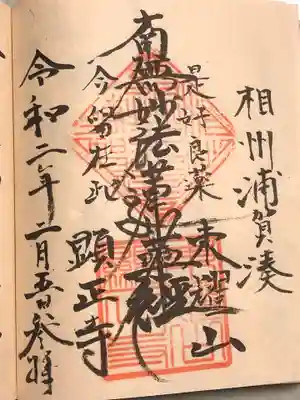 相州浦賀湊
東耀山
是好良薬
南無妙法蓮華経
今留在此
顕正寺
令和二年二月五日参拝